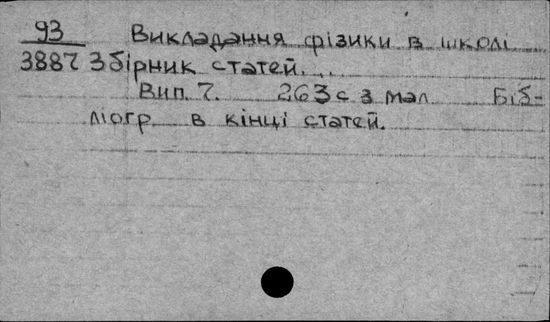 93 Викладання фізики в школі
3887 Збірник статей...
Вип. 7. 263 с з мал. Біб-
ліогр в кінці статей.